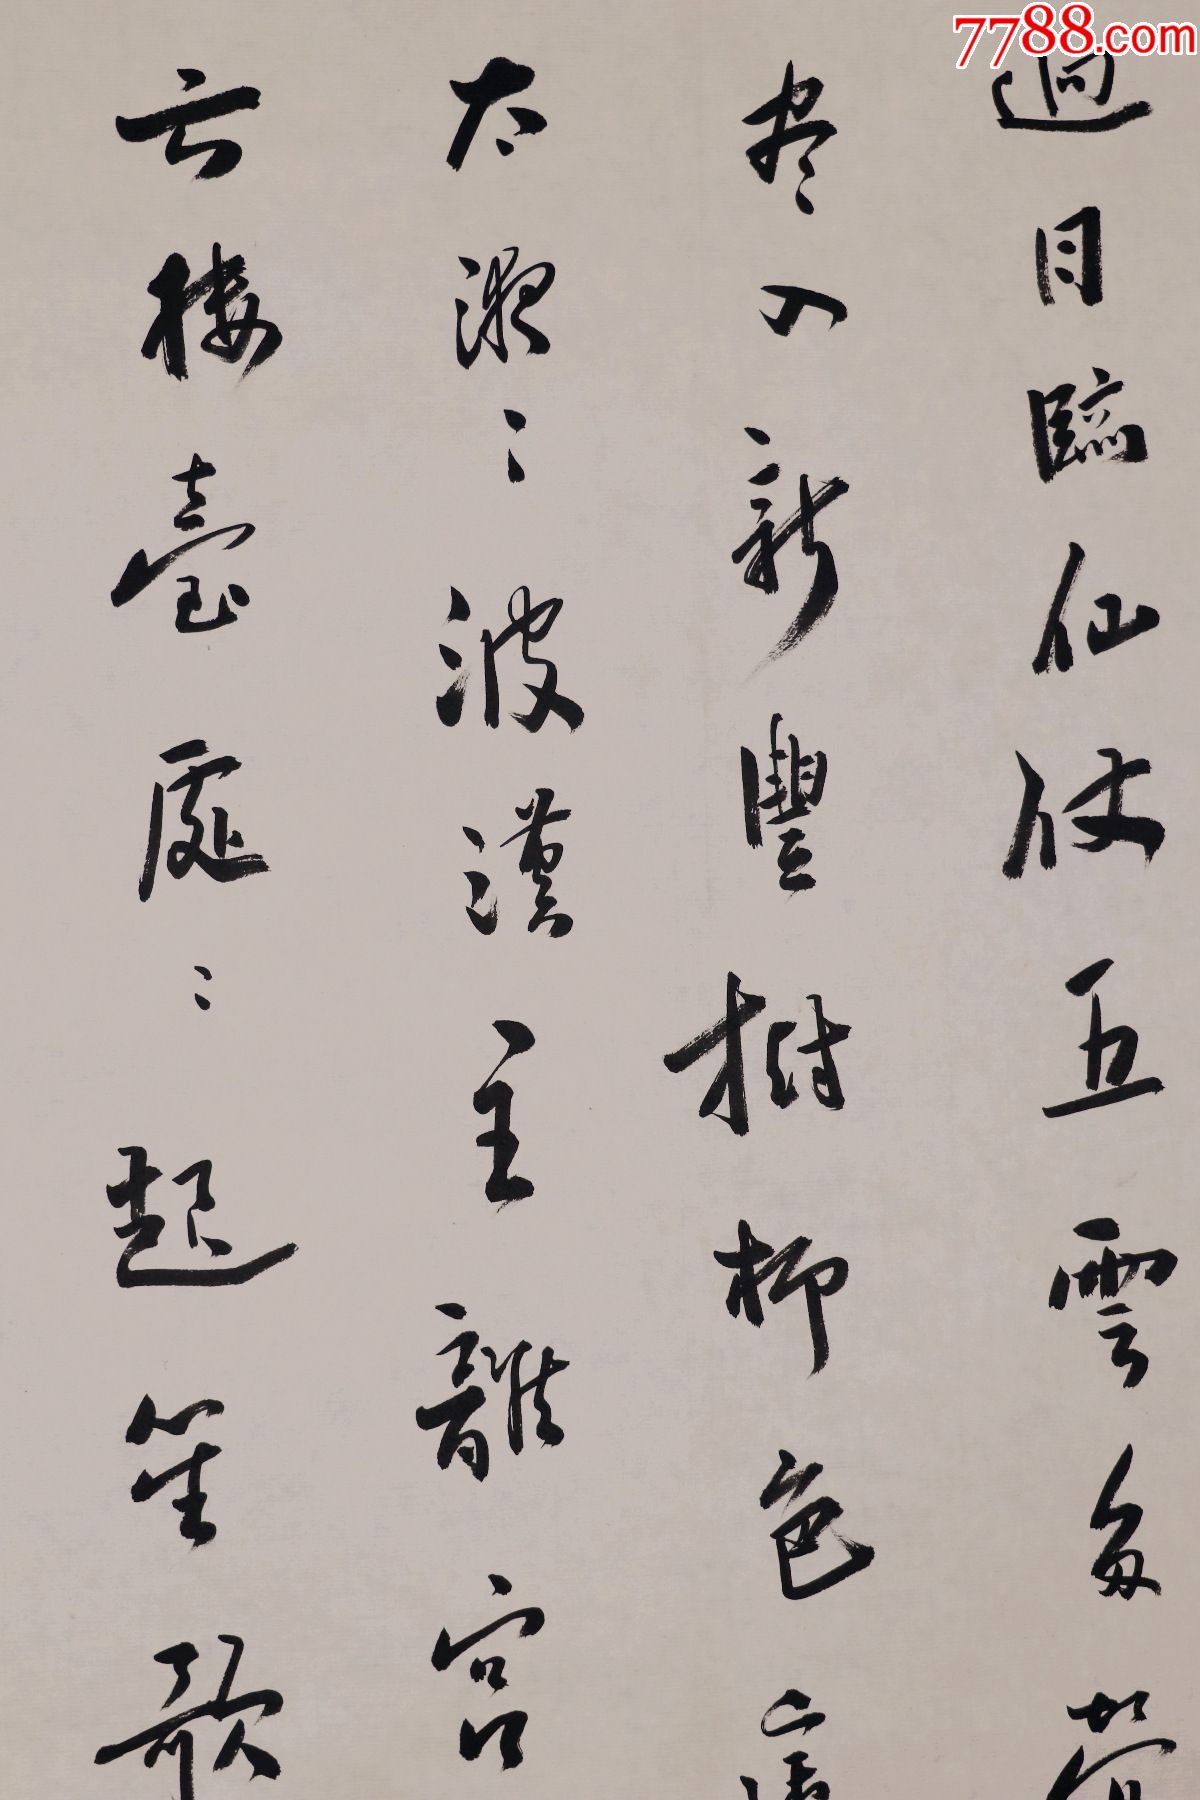 7788.com
迥日臨仙仗五雲多鶯
盡入新豐樹柳色
太液〻波漢主離宮
六樓臺處〻起笙歌